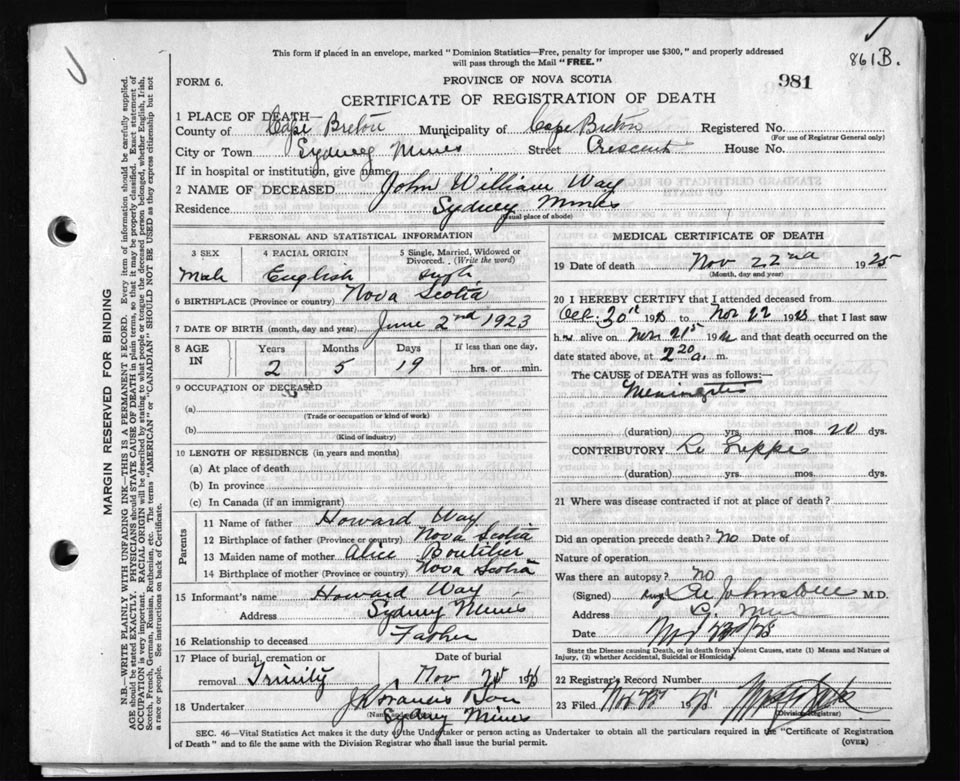 This form if placed in an envelope, marked "Dominion Statistics—Free, penalty for improper use $300," and properly addressed
will pass through the Mail "FREE."
861B.
FORM 6.
PROVINCE OF NOVA SCOTIA
981
CERTIFICATE OF REGISTRATION OF DEATH
1 PLACE OF DEATH—
County of Cape Breton Municipality of Cape Breton Registered No.
(For use of Registrar General only)
City or Town Sydney Mines Street Crescent House No.
If in hospital or institution, give name
2 NAME OF DECEASED John William Way
Residence Sydney Mines
(Usual place of abode)
PERSONAL AND STATISTICAL INFORMATION
3 SEX 4 RACIAL ORIGIN 5 Single, Married, Widowed or
Divorced. (Write the word)
Male English Single
6 BIRTHPLACE (Province or country) Nova Scotia
7 DATE OF BIRTH (month, day and year) June 2nd 1923
8 AGE IN Years Months Days If less than one day,
2 5 19 hrs. or min.
9 OCCUPATION OF DECEASED
(a)
(Trade or occupation or kind of work)
(b)
(Kind of industry)
10 LENGTH OF RESIDENCE (in years and months)
(a) At place of death
(b) In province
(c) In Canada (if an immigrant)
Parents
11 Name of father Howard Way
12 Birthplace of father (Province or country) Nova Scotia
13 Maiden name of mother Alice Boutilier
14 Birthplace of mother (Province or country) Nova Scotia
15 Informant's name Howard Way
Address Sydney Mines
16 Relationship to deceased Father
17 Place of burial, cremation or Date of burial
removal Trinity Nov
18 Undertaker
Sydney Mines
MEDICAL CERTIFICATE OF DEATH
19 Date of death Nov 22nd 1925
(Month, day and year)
20 I HEREBY CERTIFY that I attended deceased from
Oct. 30 192 to Nov 22 192 that I last saw
h alive on Nov. 21st 19 and that death occurred on the
date stated above, at 2 20 a. m.
The CAUSE of DEATH was as follows:—
Meningitis
(duration) yrs. mos. 20 dys.
CONTRIBUTORY La Grippe
(duration) yrs. mos. dys.
21 Where was disease contracted if not at place of death?
Did an operation precede death? No Date of
Nature of operation
Was there an autopsy? no
(Signed) Johnstone M.D.
Address
Date
State the Disease causing Death, or in death from Violent Causes, state (1) Means and Nature of
Injury, (2) whether Accidental, Suicidal or Homicidal.
22 Registrar's Record Number
23 Filed Nov 192
(Division Registrar)
SEC. 46—Vital Statistics Act makes it the duty of the Undertaker or person acting as Undertaker to obtain all the particulars required in the "Certificate of Registration
of Death" and to file the same with the Division Registrar who shall issue the burial permit.
(OVER)
MARGIN RESERVED FOR BINDING
N.B.—WRITE PLAINLY WITH UNFADING INK—THIS IS A PERMANENT RECORD. Every item of information should be carefully supplied.
AGE should be stated EXACTLY. PHYSICIANS should STATE CAUSE OF DEATH in plain terms, so that it may be properly classified. Exact statement of
OCCUPATION is very important. RACIAL ORIGIN will be described by stating to what people or tongue the deceased person belonged, whether English, Irish,
Scotch, French, German, Russian, Ruthenian, etc. The terms "AMERICAN" or "CANADIAN" SHOULD NOT BE USED as they express citizenship but not
a race or people. See instructions on back of Certificate.